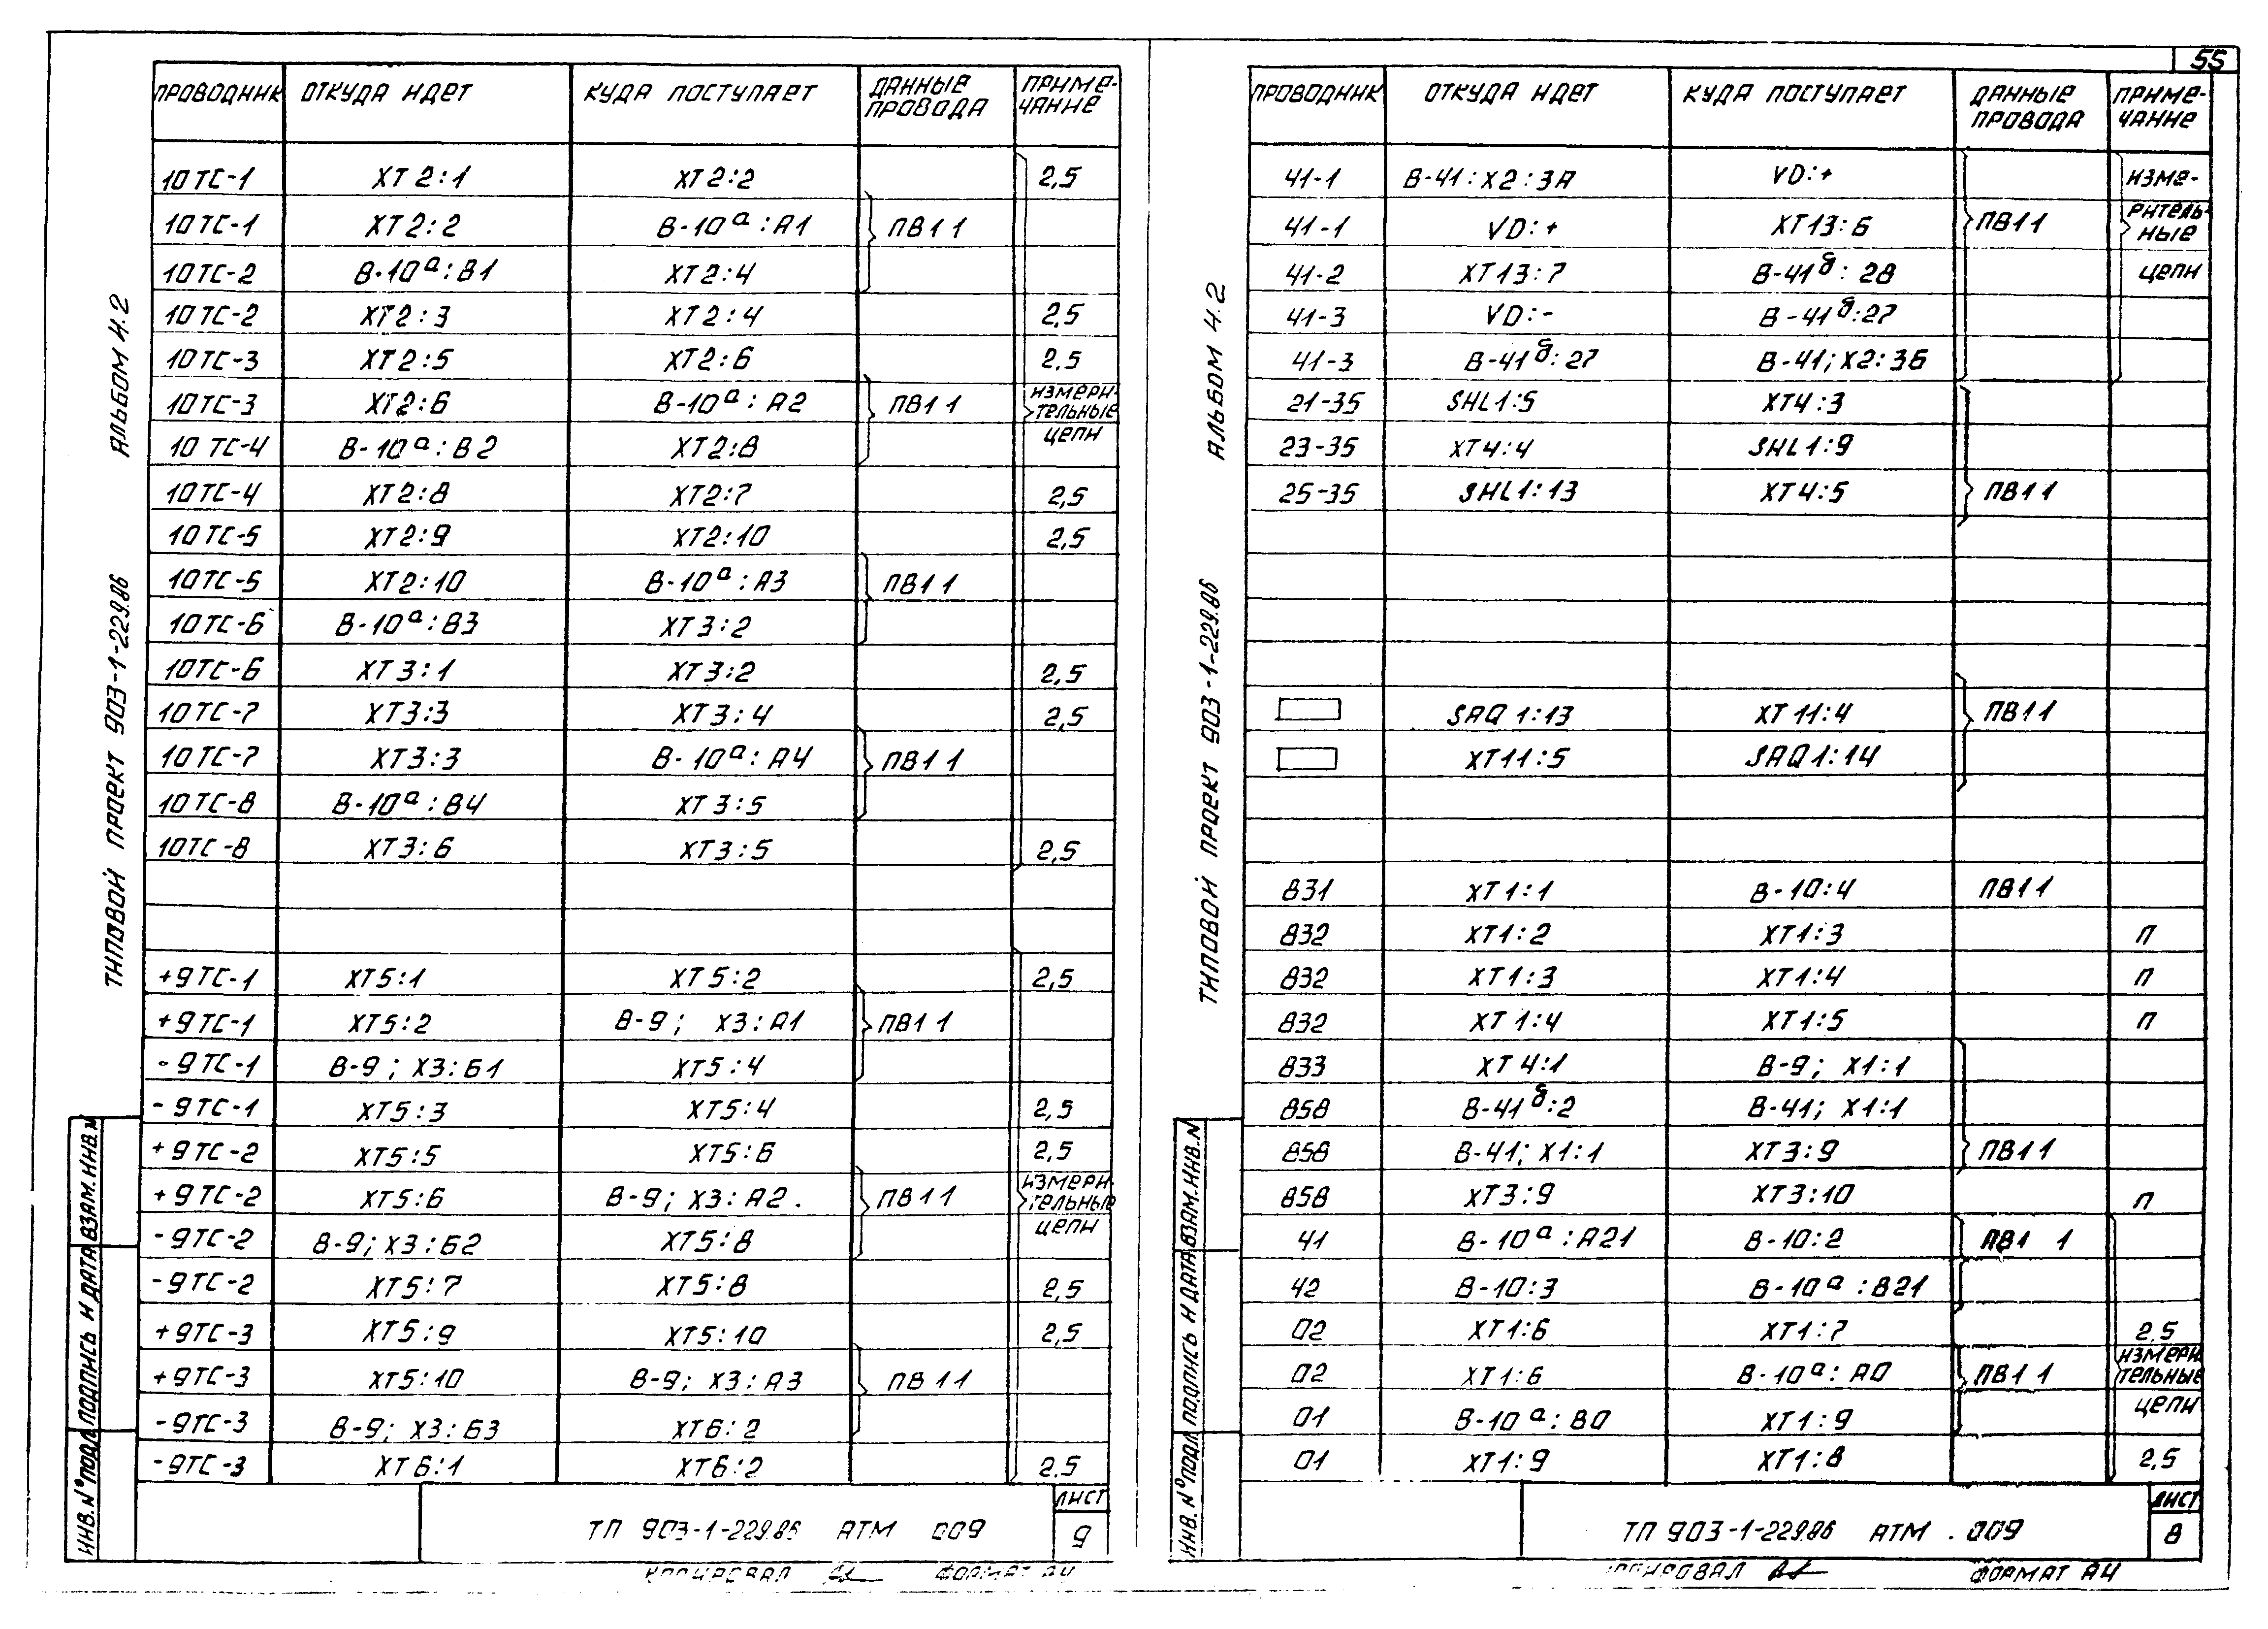 55
ПРОВОДНИК ОТКУДА ИДЕТ КУДА ПОСТУПАЕТ ДАННЫЕ ПРОВОДА ПРИМЕ-ЧАНИЕ
10ТС-1 ХТ2:1 ХТ2:2 2,5
10ТС-1 ХТ2:2 В-10а:А1 ПВ1 1
10ТС-2 В-10а:В1 ХТ2:4
10ТС-2 ХТ2:3 ХТ2:4 2,5
10ТС-3 ХТ2:5 ХТ2:6 2,5
10ТС-3 ХТ2:6 В-10а:А2 ПВ1 1 ИЗМЕРИ-ТЕЛЬНЫЕ
10ТС-4 В-10а:В2 ХТ2:8 ЦЕПИ
10ТС-4 ХТ2:8 ХТ2:7 2,5
10ТС-5 ХТ2:9 ХТ2:10 2,5
10ТС-5 ХТ2:10 В-10а:А3 ПВ1 1
10ТС-6 В-10а:В3 ХТ3:2
10ТС-6 ХТ3:1 ХТ3:2 2,5
10ТС-7 ХТ3:3 ХТ3:4 2,5
10ТС-7 ХТ3:3 В-10а:А4 ПВ1 1
10ТС-8 В-10а:В4 ХТ3:5
10ТС-8 ХТ3:6 ХТ3:5 2,5
+9ТС-1 ХТ5:1 ХТ5:2 2,5
+9ТС-1 ХТ5:2 В-9; Х3:А1 ПВ1 1
-9ТС-1 В-9; Х3:Б1 ХТ5:4
-9ТС-1 ХТ5:3 ХТ5:4 2,5
+9ТС-2 ХТ5:5 ХТ5:6 2,5
+9ТС-2 ХТ5:6 В-9; Х3:А2. ПВ1 1 ИЗМЕРИ-ТЕЛЬНЫЕ
-9ТС-2 В-9; Х3:Б2 ХТ5:8 ЦЕПИ
-9ТС-2 ХТ5:7 ХТ5:8 2,5
+9ТС-3 ХТ5:9 ХТ5:10 2,5
+9ТС-3 ХТ5:10 В-9; Х3:А3 ПВ 1 1
-9ТС-3 В-9; Х3:Б3 ХТ6:2
-9ТС-3 ХТ6:1 ХТ6:2 2.5
ТП 903-1-229.86 АТМ 009
ЛИСТ
9
КОПИРОВАЛ ФОРМАТ А4
АЛЬБОМ 4.2
ТИПОВОЙ ПРОЕКТ 903-1-229.86
ВЗАМ.ИНВ.N
ПОДПИСЬ И ДАТА
ИНВ.N°ПОДЛ
ПРОВОДНИК ОТКУДА ИДЕТ КУДА ПОСТУПАЕТ ДАННЫЕ ПРОВОДА ПРИМЕ-ЧАНИЕ
41-1 В-41:Х2:3А VD:+ ИЗМЕ-
41-1 VD:+ ХТ13:6 ПВ1 1 РИТЕЛЬ-НЫЕ
41-2 ХТ13:7 В-41б:28 ЦЕПИ
41-3 VD:- В-41б:27
41-3 В-41б:27 В-41; Х2:3Б
21-35 SHL1:5 ХТ4:3
23-35 ХТ4:4 SHL1:9
25-35 SHL1:13 ХТ4:5 ПВ1 1
SAQ1:13 ХТ11:4 ПВ1 1
ХТ11:5 SAQ1:14
831 ХТ1:1 В-10:4 ПВ1 1
832 ХТ1:2 ХТ1:3 П
832 ХТ1:3 ХТ1:4 П
832 ХТ1:4 ХТ1:5 П
833 ХТ4:1 В-9; Х1:1
858 В-41б:2 В-41; Х1:1
858 В-41; Х1:1 ХТ3:9 ПВ1 1
858 ХТ3:9 ХТ3:10 П
41 В-10а:А21 В-10:2 ПВ1 1
42 В-10:3 В-10а:В21
02 ХТ1:6 ХТ1:7 2.5
02 ХТ1:6 В-10а:А0 ПВ1 1 ИЗМЕРИ-ТЕЛЬНЫЕ
01 В-10а:В0 ХТ1:9 ЦЕПИ
01 ХТ1:9 ХТ1:8 2,5
ТП 903-1-229.86 АТМ . 009
ЛИСТ
8
КОПИРОВАЛ ФОРМАТ А4
АЛЬБОМ 4.2
ТИПОВОЙ ПРОЕКТ 903-1-229.86
ВЗАМ.ИНВ.N
ПОДПИСЬ И ДАТА
ИНВ.N°ПОДЛ